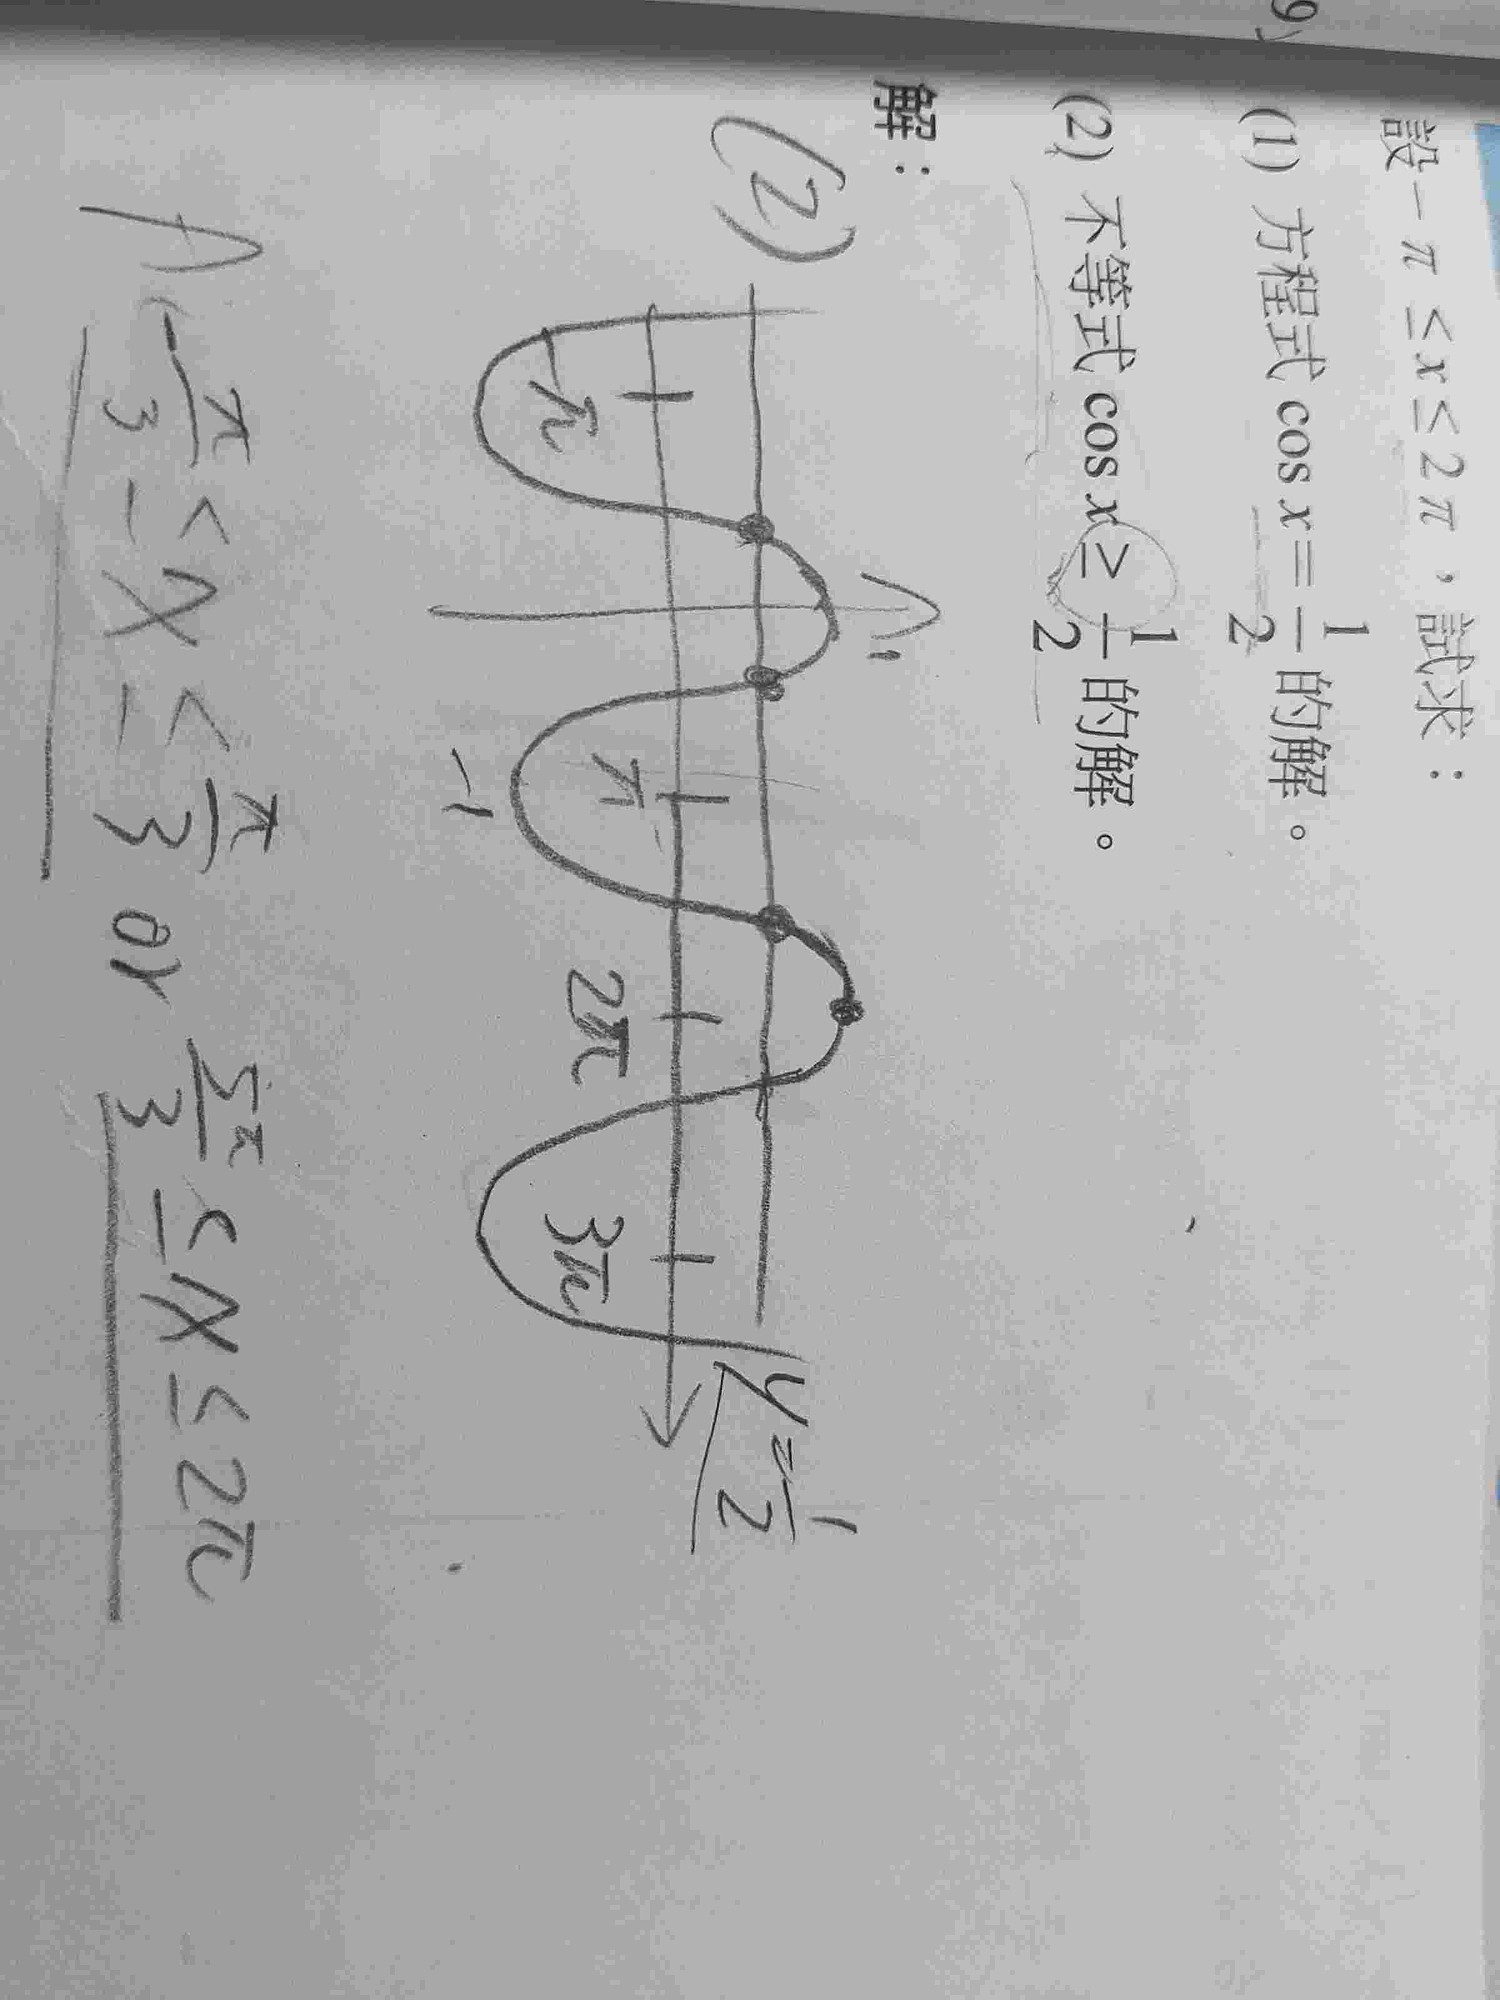 9)
設 −π ≤ x ≤ 2π，試求：
(1) 方程式 cos x = 1/2 的解。
(2) 不等式 cos x ≥ 1/2 的解。
解：
(2)
1
y = 1/2
-π π 2π 3π
-1
A -π/3 ≤ x ≤ π/3 or 5π/3 ≤ x ≤ 2π